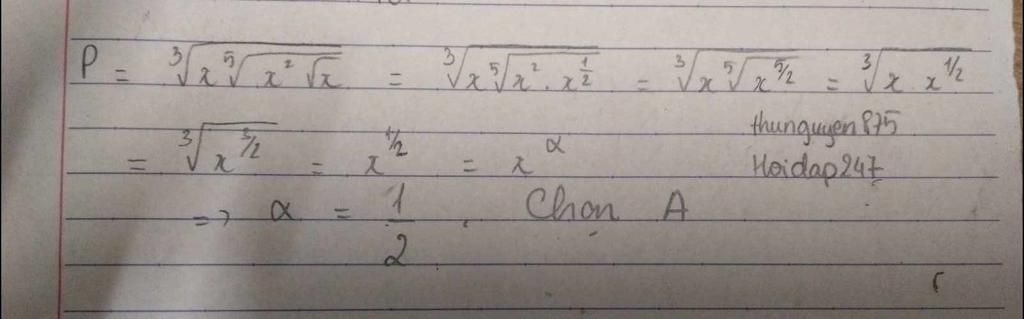 P = ∛(x ⁵√(x² √x)) = ∛(x ⁵√(x² . x^(1/2))) = ∛(x ⁵√(x^(5/2))) = ∛(x . x^(1/2))
= ∛(x^(3/2)) = x^(1/2) = x^α
thunguyen875
Hoidap247
=> α = 1/2 . Chọn A